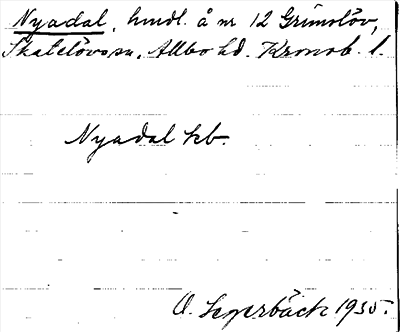 Nyadal, hmdl. å nr 12 Grimslöv,
Skatelövs sn, Allbo hd. Kronob. l.
Nyadal kb.
O. Segerbäck 1935.